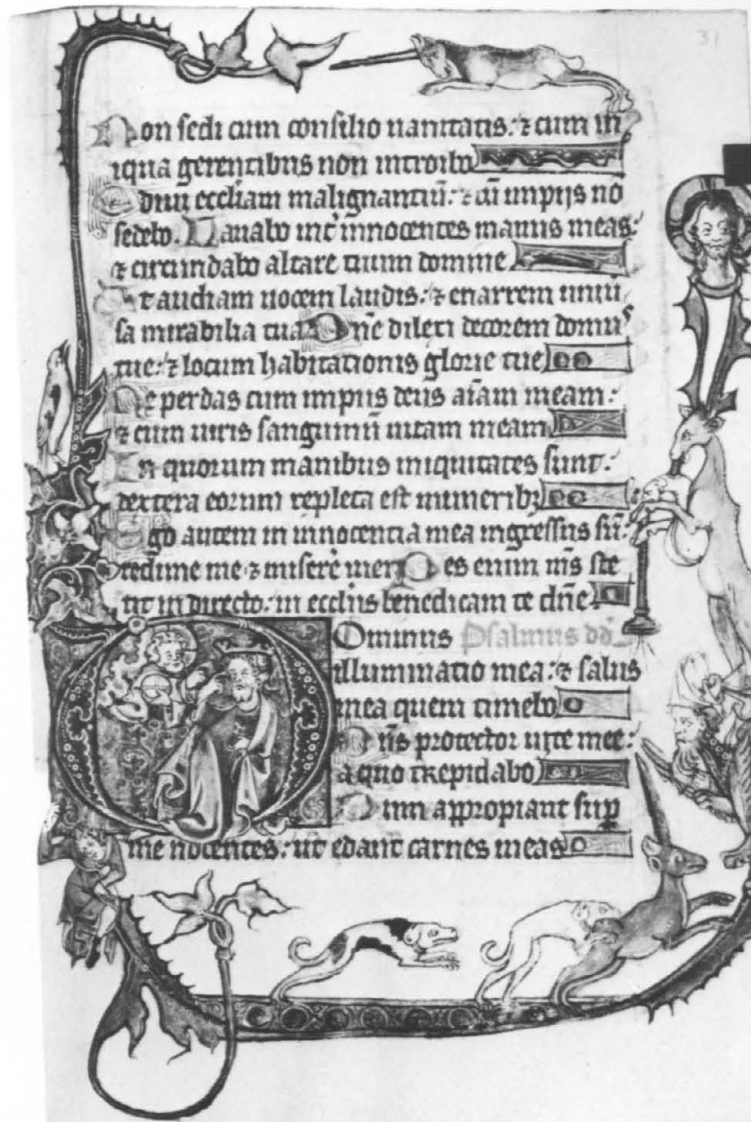 31
Non sedi cum consilio uanitatis: ⁊ cum in
iqua gerentibus non introibo
Odiui eccl̄iam malignantiū: ⁊ cū impijs nō
sedebo. Lauabo int̄ innocentes manus meas:
⁊ circundabo altare tuum domine
Ut audiam uocem laudis: ⁊ enarrem uniu
sa mirabilia tua Dn̄e dilexi decorem domus
tue: ⁊ locum habitationis glorie tue
Ne perdas cum impiis deus aīam meam:
⁊ cum uiris sanguinū uitam meam
In quorum manibus iniquitates sunt:
dextera eorum repleta est muneribꝫ
Ego autem in innocentia mea ingressus sū:
redime me ⁊ miserē mei Pes enim m̄s ste
tit in directo: in eccl̄iis benedicam te dn̄e
Dominus Psalmus dd̄
illuminatio mea: ⁊ salus
mea quem timebo
Dn̄s protector uite mee:
a quo trepidabo
Dum appropiant sup̄
me nocentes: ut edant carnes meas